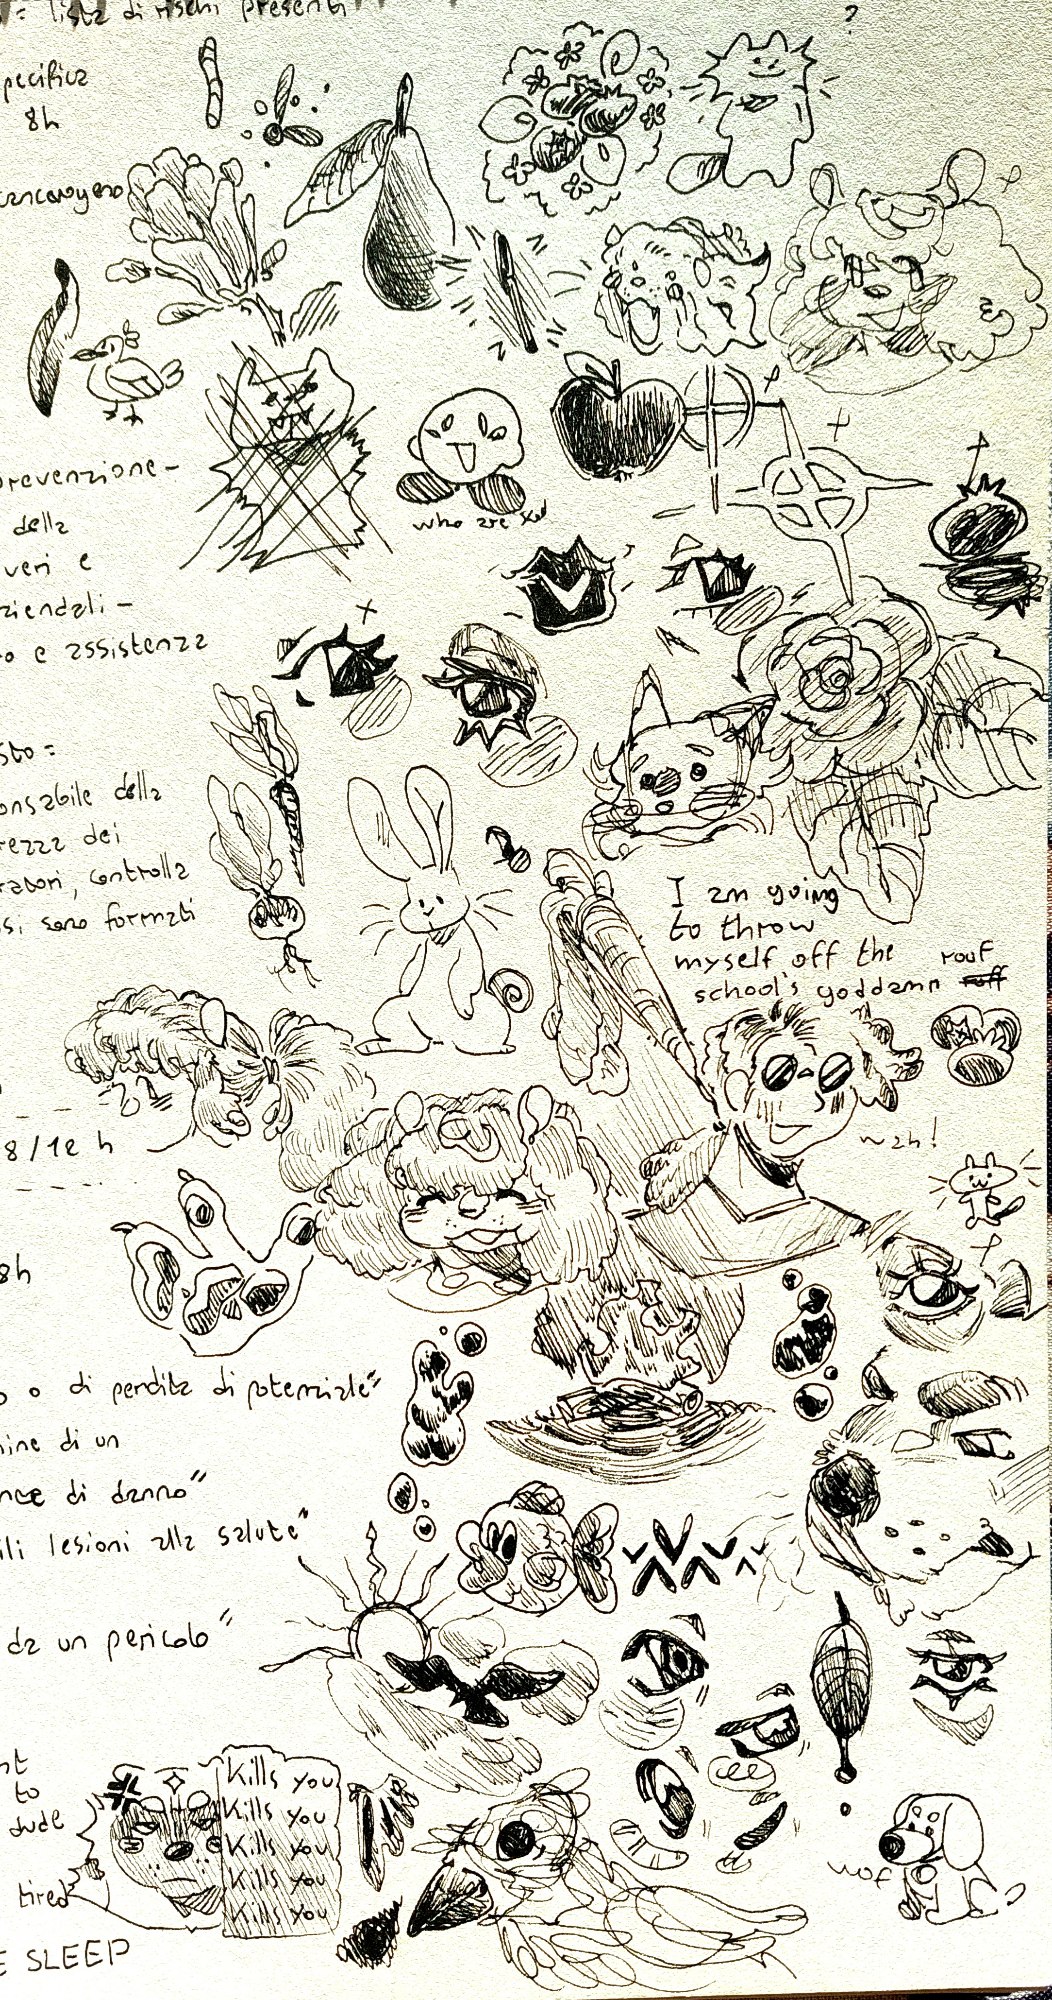 = lista di rischi presenti
?
pecifica
8h
prevenzione -
della
veri e
ziendali -
o e assistenza
who are you
sto =
onsabile della
rezza dei
ratori, controlla
si, sono formati
I am going
to throw
myself off the
school's goddamn roof
wah!
8/12 h
8h
o di perdita di potenziale"
ine di un
di danno"
ili lesioni alla salute"
da un pericolo"
to
dude
tired
E SLEEP
Kills you
Kills you
Kills you
Kills you
Kills you
wof